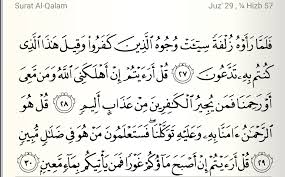 Surat Al-Qalam
Juz' 29 , ¼ Hizb 57
فَلَمَّا رَأَوْهُ زُلْفَةً سِيٓـَٔتْ وُجُوهُ ٱلَّذِينَ كَفَرُوا۟ وَقِيلَ هَـٰذَا ٱلَّذِى
كُنتُم بِهِۦ تَدَّعُونَ ٢٧ قُلْ أَرَءَيْتُمْ إِنْ أَهْلَكَنِىَ ٱللَّهُ وَمَن مَّعِىَ
أَوْ رَحِمَنَا فَمَن يُجِيرُ ٱلْكَـٰفِرِينَ مِنْ عَذَابٍ أَلِيمٍ ٢٨ قُلْ هُوَ
ٱلرَّحْمَـٰنُ ءَامَنَّا بِهِۦ وَعَلَيْهِ تَوَكَّلْنَا ۖ فَسَتَعْلَمُونَ مَنْ هُوَ فِى ضَلَـٰلٍ مُّبِينٍ
٢٩ قُلْ أَرَءَيْتُمْ إِنْ أَصْبَحَ مَآؤُكُمْ غَوْرًا فَمَن يَأْتِيكُم بِمَآءٍ مَّعِينٍۭ ٣٠